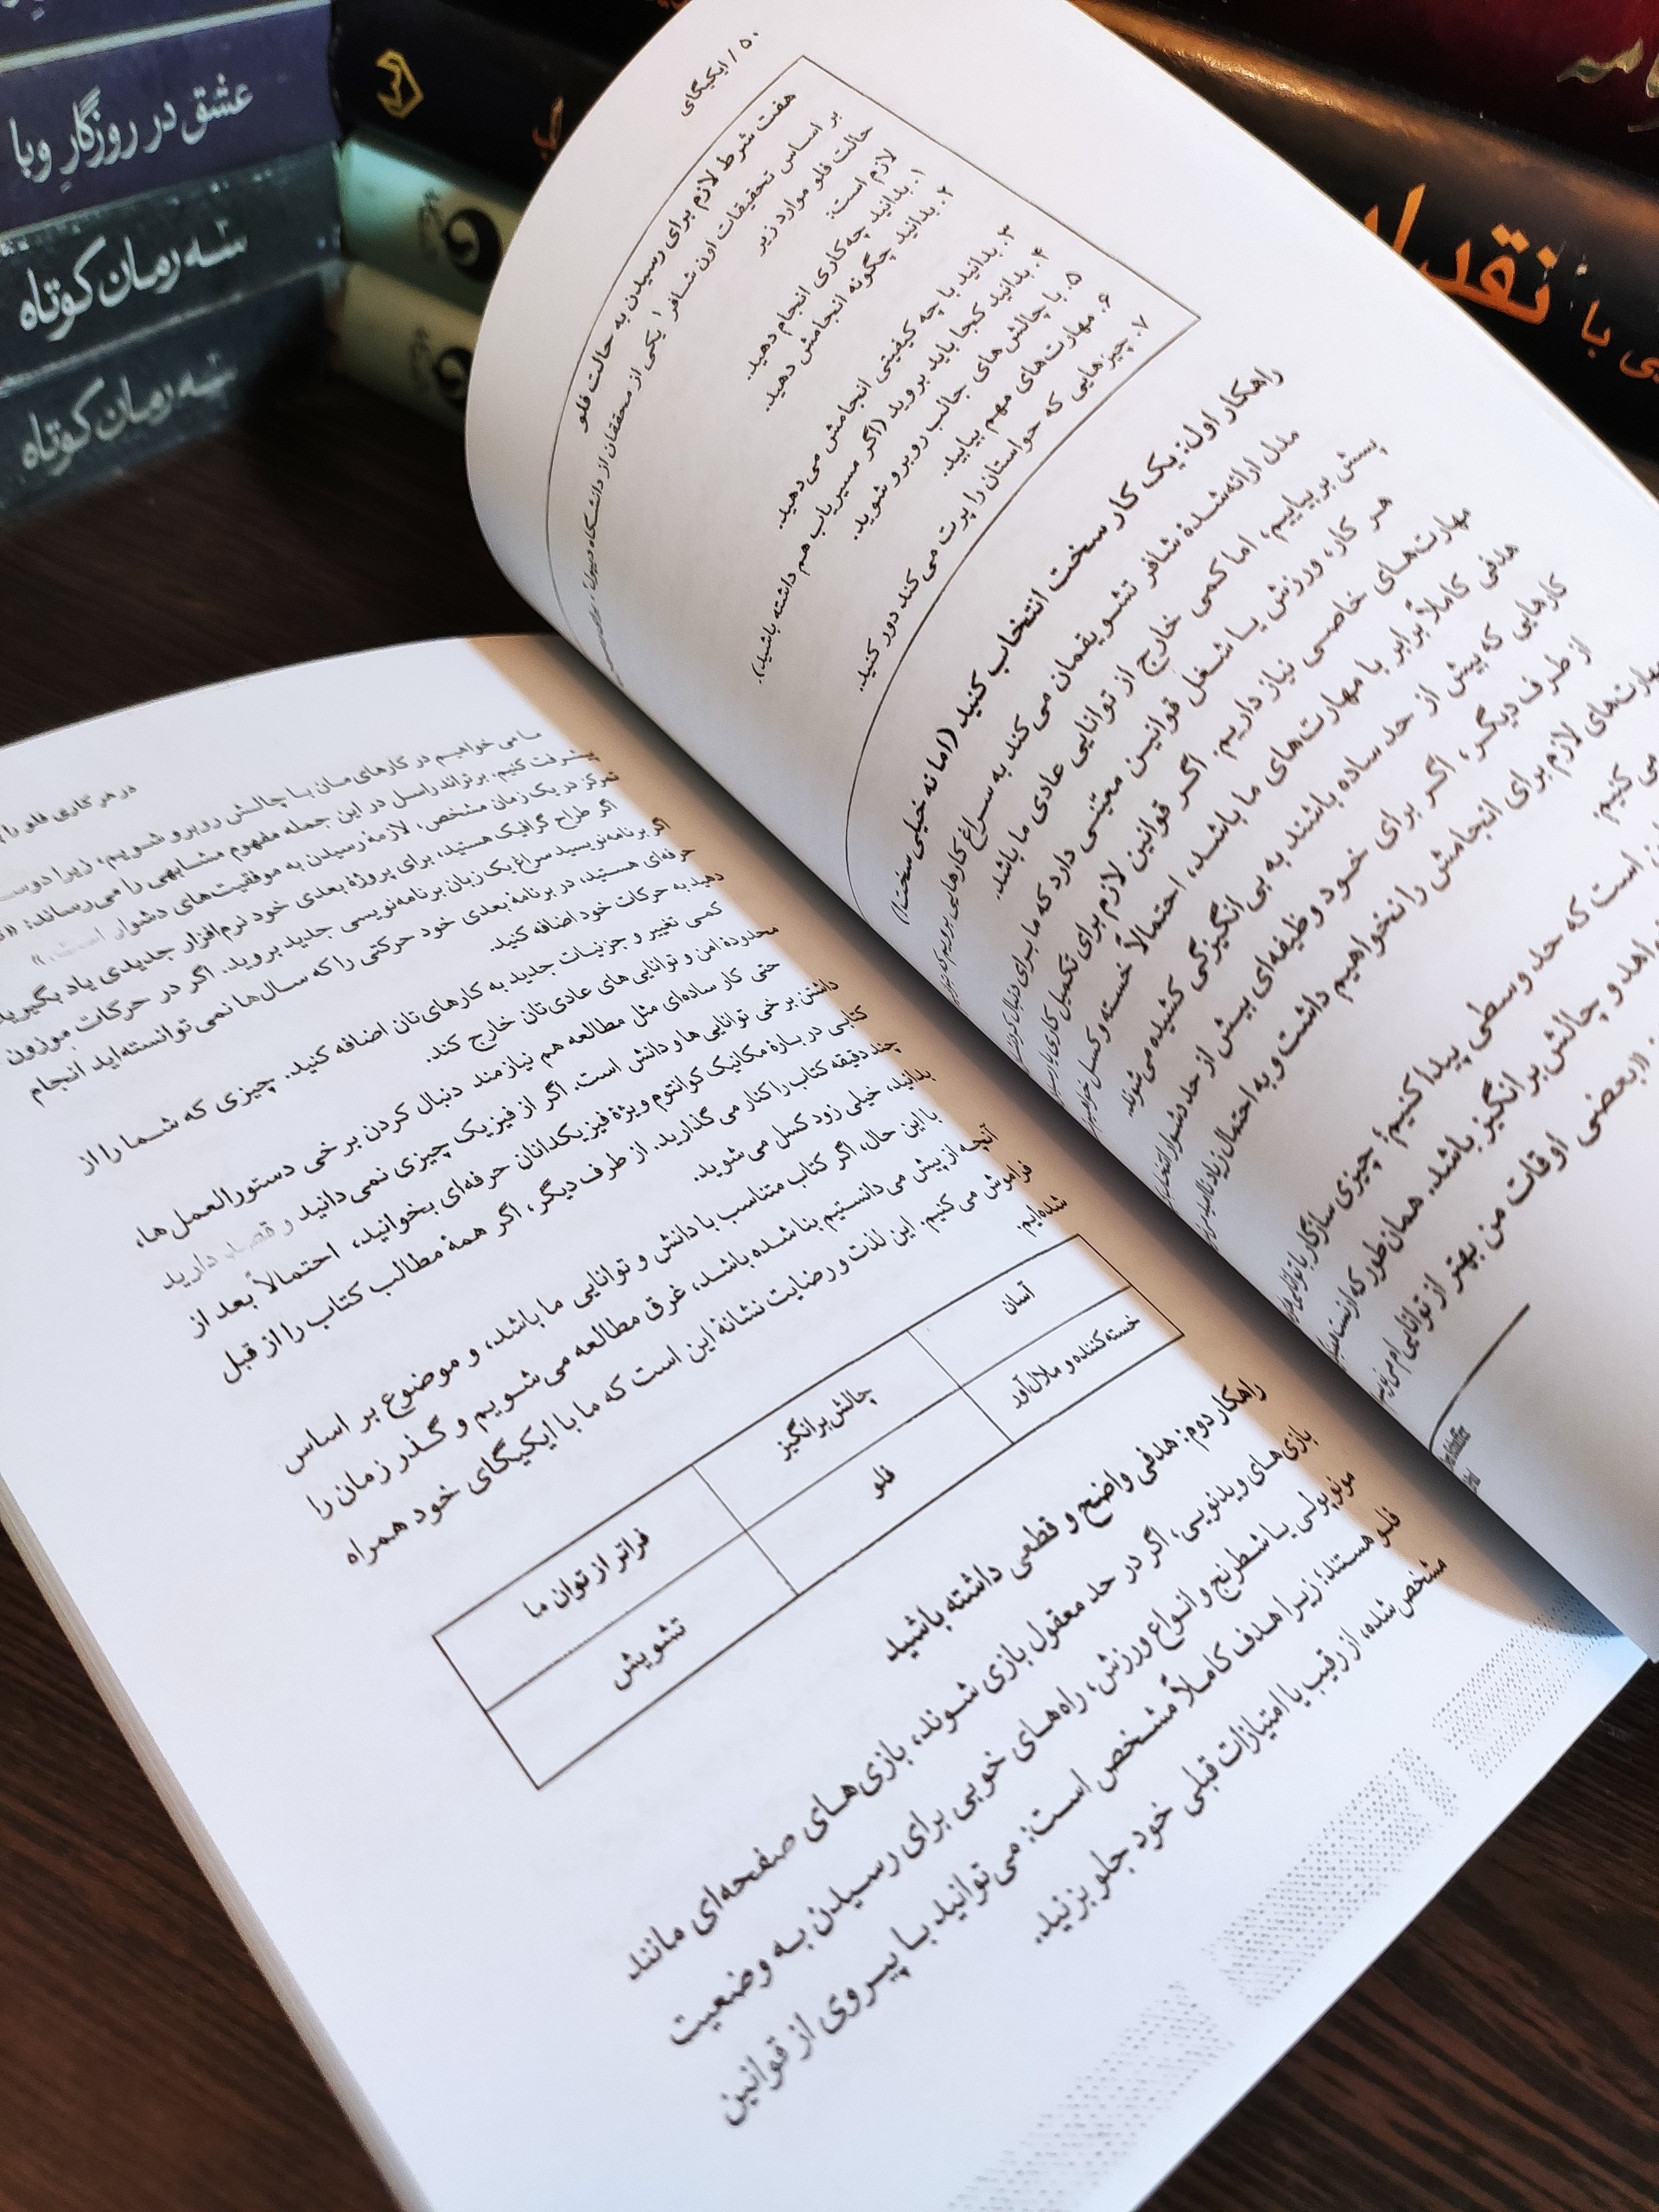 عشق در روزگارِ وبا
سه رمان کوتاه
سه رمان کوتاه
نقد
با
۵۰ / ایکیگای
هفت شرط لازم برای رسیدن به حالت فلو
بر اساس تحقیقات اون شافر۱ یکی از محققان از دانشگاه دیپول،
حالت فلو موارد زیر
لازم است:
۱. بدانید چه کاری انجام دهید.
۲. بدانید چگونه انجامش دهید.
۳. بدانید با چه کیفیتی انجامش می‌دهید.
۴. بدانید کجا باید بروید (اگر مسیریاب هم داشته باشید).
۵. با چالش‌های جالب روبرو شوید.
۶. مهارت‌های مهم بیابید.
۷. چیزهایی که حواستان را پرت می‌کند دور کنید.
راهکار اول: یک کار سخت انتخاب کنید (اما نه خیلی سخت!)
مدل ارائه‌شده شافر تشویقمان می‌کند به سراغ کارهایی برویم که
پسش بر بیاییم، اما کمی خارج از توانایی عادی ما باشد.
هر کار، ورزش یا شغل قوانین معینی دارد که ما برای دنبال کردنشان
مهارت‌های خاصی نیاز داریم. اگر قوانین لازم برای تکمیل کاری یا
هدفی کاملاً برابر با مهارت‌های ما باشد، احتمالاً خسته و کسل خواهیم
کارهایی که بیش از حد ساده باشند به بی‌انگیزگی کشیده می‌شوند.
از طرف دیگر، اگر برای خود وظیفه‌ای بیش از حد دشوار انتخاب
مهارت‌های لازم برای انجامش را نخواهیم داشت و به احتمال زیاد ناامید
می‌کنیم
است که حد وسطی پیدا کنیم؛ چیزی سازگار با توانایی
و چالش‌برانگیز باشد. همان‌طور که ارنست
«بعضی اوقات من بهتر از توانایی‌ام می‌نویسم
در هر کاری فلو را
ما می‌خواهیم در کارهای‌مان با چالش روبرو شویم، زیرا دوست
پیشرفت کنیم. برتراند راسل در این جمله مفهوم مشابهی را می‌رساند: «
تمرکز در یک زمان مشخص، لازمهٔ رسیدن به موفقیت‌های دشوار است.»
اگر طراح گرافیک هستید، برای پروژهٔ بعدی خود نرم‌افزار جدیدی یاد بگیرید
اگر برنامه‌نویسید سراغ یک زبان برنامه‌نویسی جدید بروید. اگر در حرکات موزون
حرفه‌ای هستید، در برنامه بعدی خود حرکتی را که سال‌ها نمی‌توانسته‌اید انجام
دهید به حرکات خود اضافه کنید.
کمی تغییر و جزئیات جدید به کارهای‌تان اضافه کنید. چیزی که شما را از
محدودهٔ امن و توانایی‌های عادی‌تان خارج کند.
حتی کار ساده‌ای مثل مطالعه هم نیازمند دنبال کردن برخی دستورالعمل‌ها،
داشتن برخی توانایی‌ها و دانش است. اگر از فیزیک چیزی نمی‌دانید و قصد دارید
کتابی در بارهٔ مکانیک کوانتوم ویژهٔ فیزیکدانان حرفه‌ای بخوانید، احتمالاً بعد از
چند دقیقه کتاب را کنار می‌گذارید. از طرف دیگر، اگر همهٔ مطالب کتاب را از قبل
بدانید، خیلی زود کسل می‌شوید.
با این حال، اگر کتاب متناسب با دانش و توانایی ما باشد، و موضوع بر اساس
آنچه از پیش می‌دانستیم بنا شده باشد، غرق مطالعه می‌شویم و گذر زمان را
فراموش می‌کنیم. این لذت و رضایت نشانهٔ این است که ما با ایکیگای خود همراه
شده‌ایم.
آسان چالش‌برانگیز فراتر از توان ما
خسته‌کننده و ملال‌آور فلو تشویش
راهکار دوم: هدفی واضح و قطعی داشته باشید
بازی‌های ویدئویی، اگر در حد معقول بازی شوند، بازی‌های صفحه‌ای مانند
مونوپولی یا شطرنج و انواع ورزش، راه‌های خوبی برای رسیدن به وضعیت
فلو هستند؛ زیرا هدف کاملاً مشخص است: می‌توانید با پیروی از قوانین
مشخص شده، از رقیب یا امتیازات قبلی خود جلو بزنید.